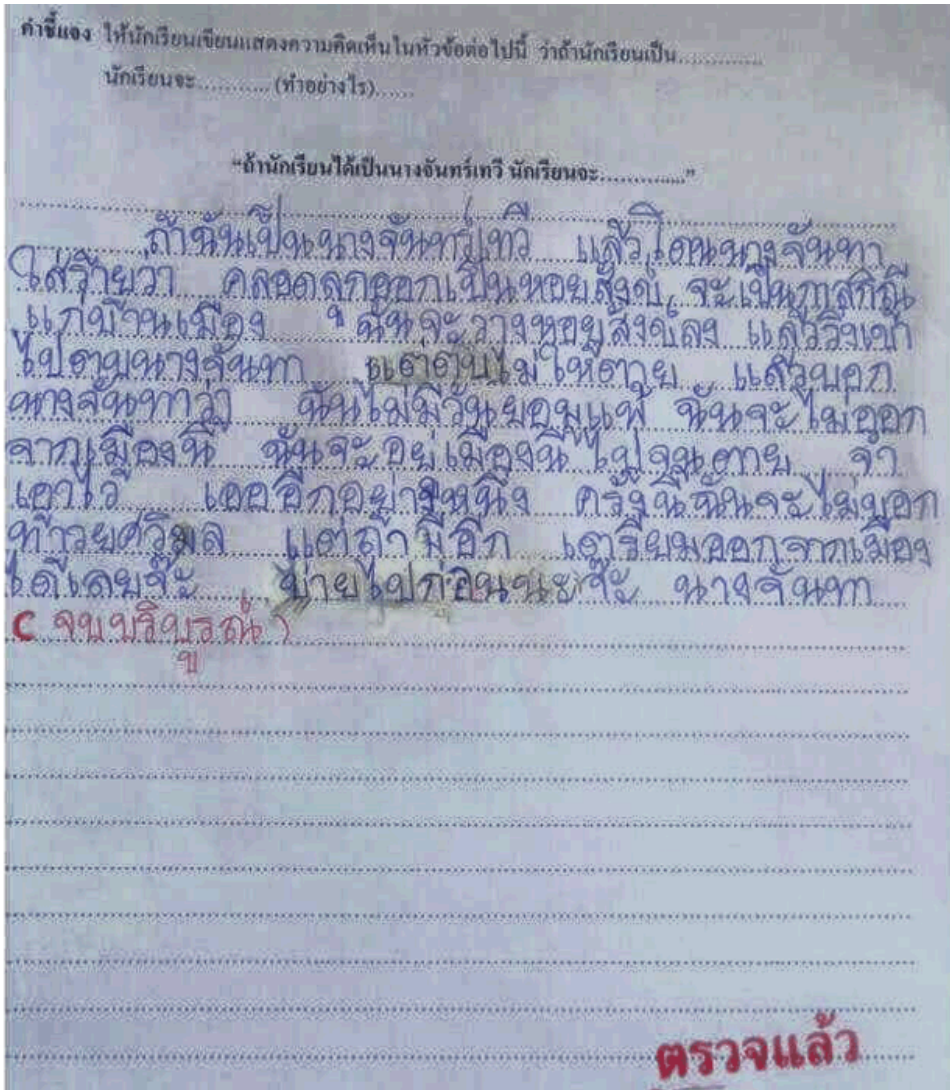 คำชี้แจง ให้นักเรียนเขียนแสดงความคิดเห็นในหัวข้อต่อไปนี้ ว่าถ้านักเรียนเป็น.............
นักเรียนจะ........... (ทำอย่างไร)......
"ถ้านักเรียนได้เป็นนางจันทร์เทวี นักเรียนจะ.............."
ถ้าฉันเป็นนางจันทร์เทวี แล้วโดนนางจันทา
ใส่ร้ายว่า คลอดลูกออกเป็นหอยสังข์ จะเป็นกาสกิณี
แก่บ้านเมือง ฉันจะวางหอยสังข์ลง แล้ววิ่งเข้า
ไปตบนางจันทา แต่ตบไม่ให้ตาย แล้วบอก
นางจันทาว่า ฉันไม่มีวันยอมแพ้ ฉันจะไม่ออก
จากเมืองนี้ ฉันจะอยู่เมืองนี้ไปจนตาย จำ
เอาไว้ เออีกอย่างหนึ่ง ครั้งนี้ฉันจะไม่บอก
ท้าวยศวิมล แต่ถ้ามีอีก เตรียมออกจากเมือง
ได้เลยจ๊ะ บ่ายไปก่อนนะจ๊ะ นางจันทา
( จบบริบูรณ์ )
ตรวจแล้ว